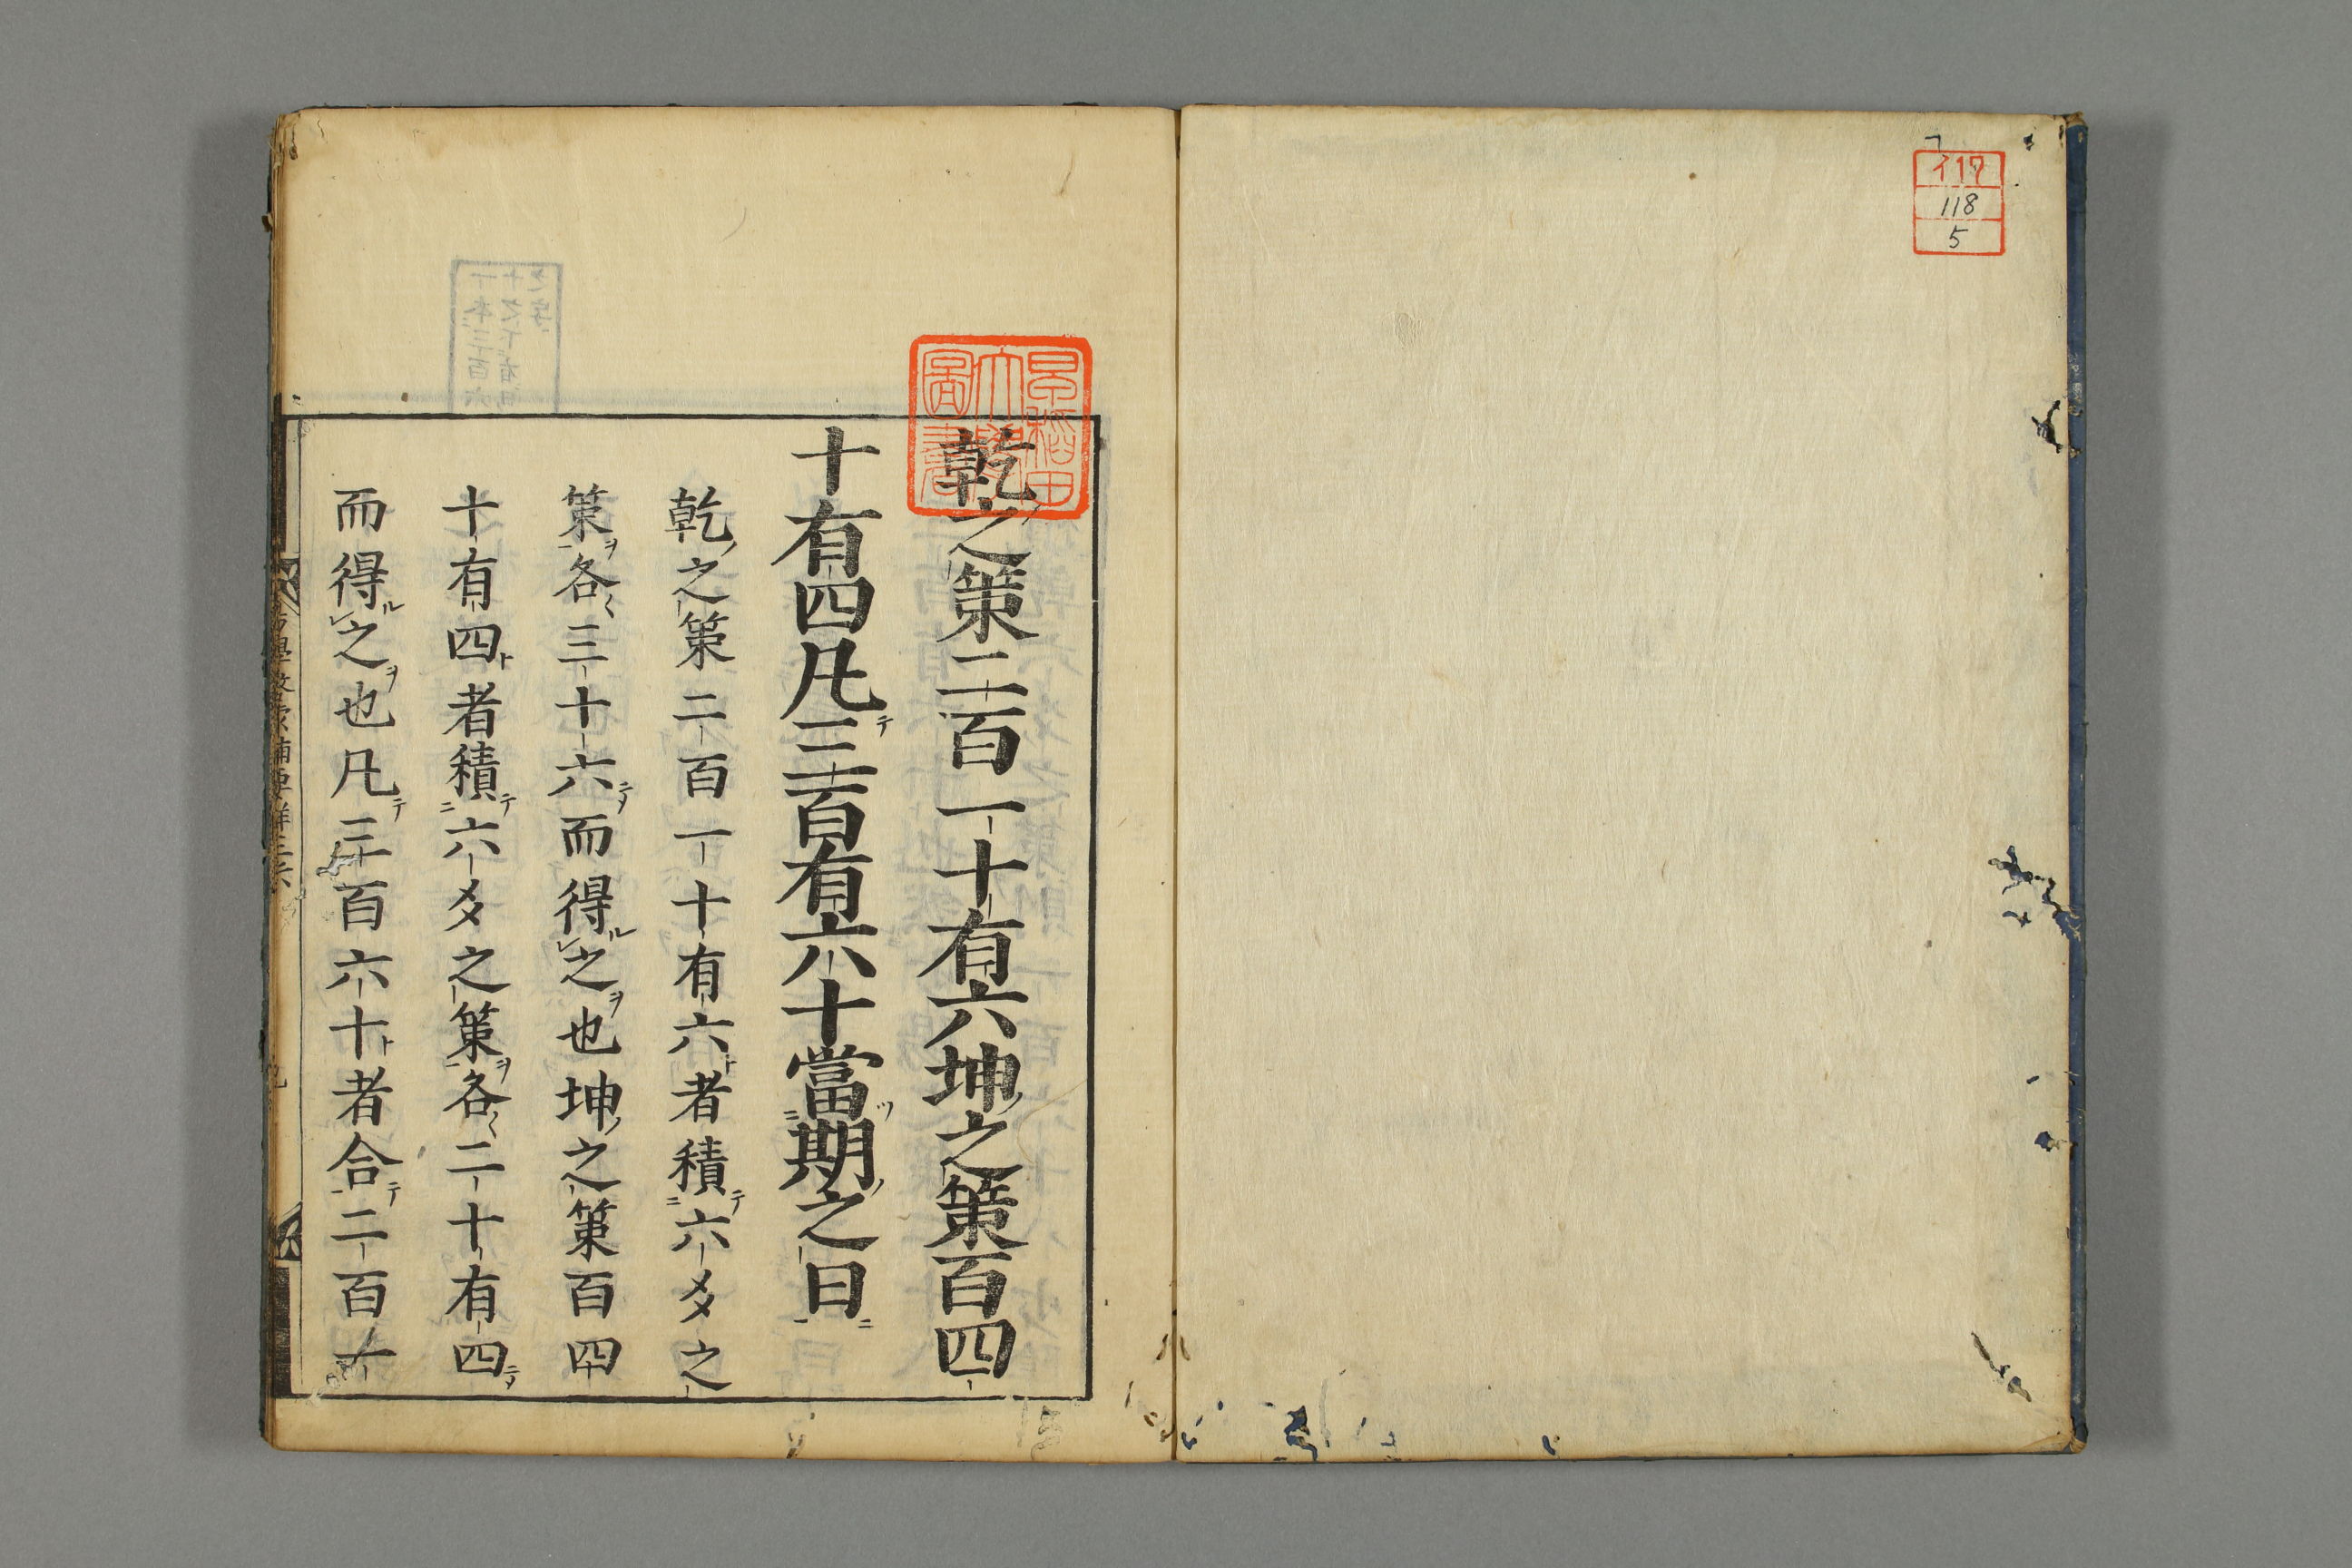 イ17
118
5
早稲田
大學
圖書
乾之策二百一十有六坤之策百四
十有四凡三百有六十當期之日
乾之策二百一十有六者積六爻之
策各三十六而得之也坤之策百四
十有四者積六爻之策各二十有四
而得之也凡三百六十者合二百一十